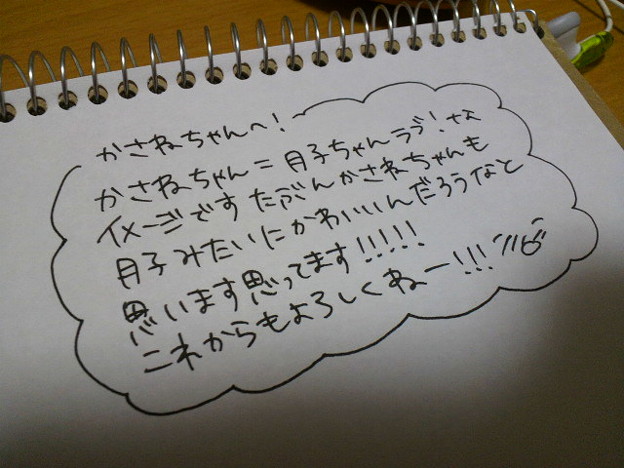 かさねちゃんへ!
かさねちゃん=月子ちゃんラブ!な
イメージです たぶんかさねちゃんも
月子みたいにかわいいんだろうなと
思います思ってます!!!!!
これからもよろしくねー!!!